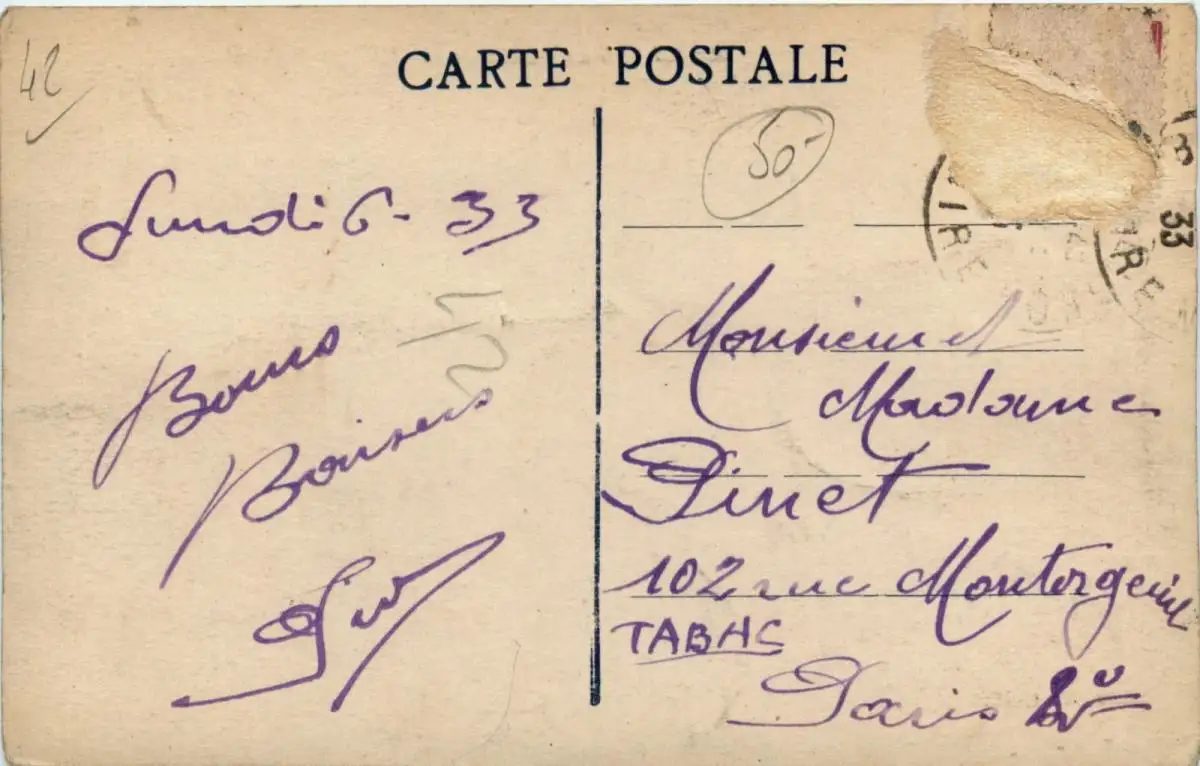 42
CARTE POSTALE
50-
Lundi 6 - 33
Bons
Baisers
8
33
IRE
IRE
Monsieur et
Madame
Pinet
102 rue Montorgeuil
TABAC
Paris 2e